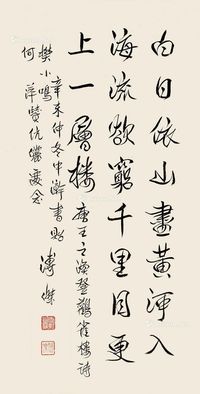 白日依山盡黃河入
海流欲窮千里目更
上一層樓 唐王之渙登鸛雀樓詩
辛未仲冬中澣書貽
樊小鳴
何萍賢伉儷念
溥傑